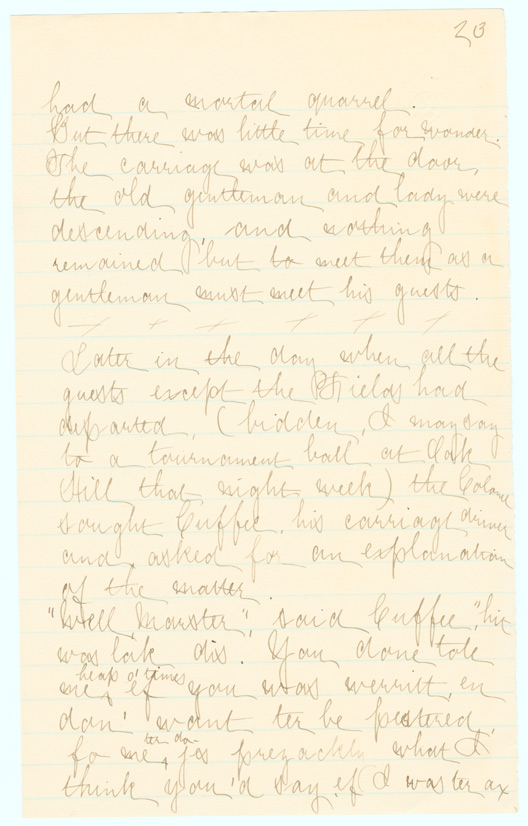 23
had a mortal quarrel.
But there was little time for wonder.
The carriage was at the door,
the old gentleman and lady were
descending, and nothing
remained but to meet them as a
gentleman must meet his guests.
x x x x x x
Later in the day when all the
guests except the Fields had
departed, (bidden, I may say
to a tournament ball at Oak
Hill that night week) the Colonel
sought Cuffee, his carriage driver
and asked for an explanation
of the matter.
"Well, Marster", said Cuffee, "hit
was lak dis. You done tole
me, heap o' times ef you was werrit, en
don' want ter be pestered,
fo me ter do jes prezackly what I
think you'd say if I was ter ax